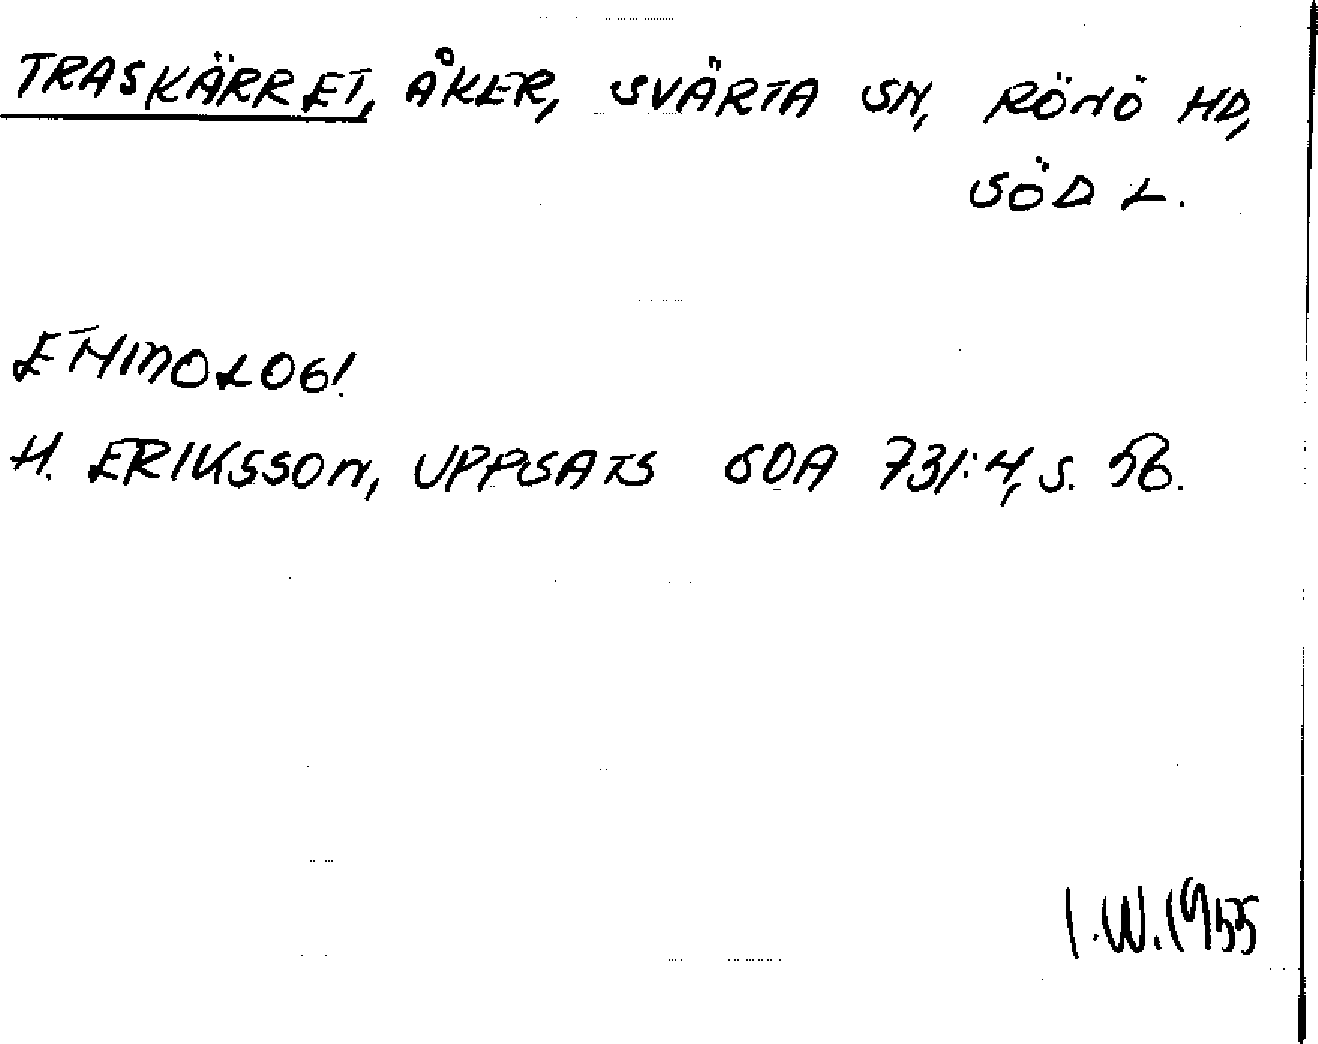 TRASKÄRRET, ÅKER, SVÄRTA SN, RÖNÖ HD,
SÖD L.
ETYMOLOGI.
H. ERIKSSON, UPPSATS SOA 731:4, S. 56.
I.W.1955